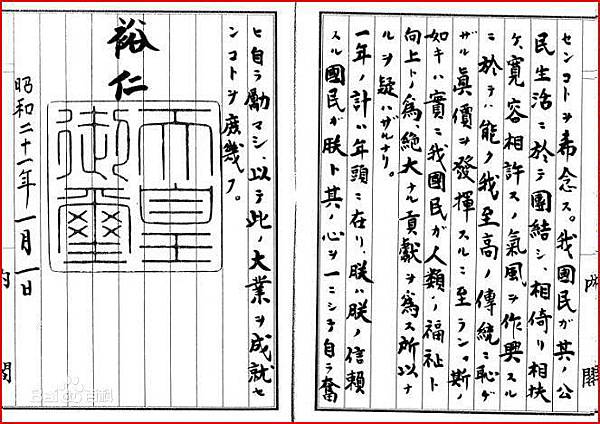 内閣
センコトヲ希念ス。我國民ガ其ノ公
民生活ニ於テ團結シ、相倚リ相扶
ケ、寛容相許スノ氣風ヲ作興スル
ニ於テハ能ク我至高ノ傳統ニ恥ヂ
ザル眞價ヲ發揮スルニ至ラン。斯ノ
如キハ實ニ我國民ガ人類ノ福祉ト
向上トノ爲、絶大ナル貢獻ヲ爲ス所以ナ
ルヲ疑ハザルナリ。
一年ノ計ハ年頭ニ在リ、朕ハ朕ノ信賴
スル國民ガ朕ト其ノ心ヲ一ニシテ自ラ奮
ヒ自ラ勵マシ、以テ此ノ大業ヲ成就セ
ンコトヲ庶幾フ。
裕仁
天皇
御璽
昭和二十一年一月一日
内閣
Baidu百科